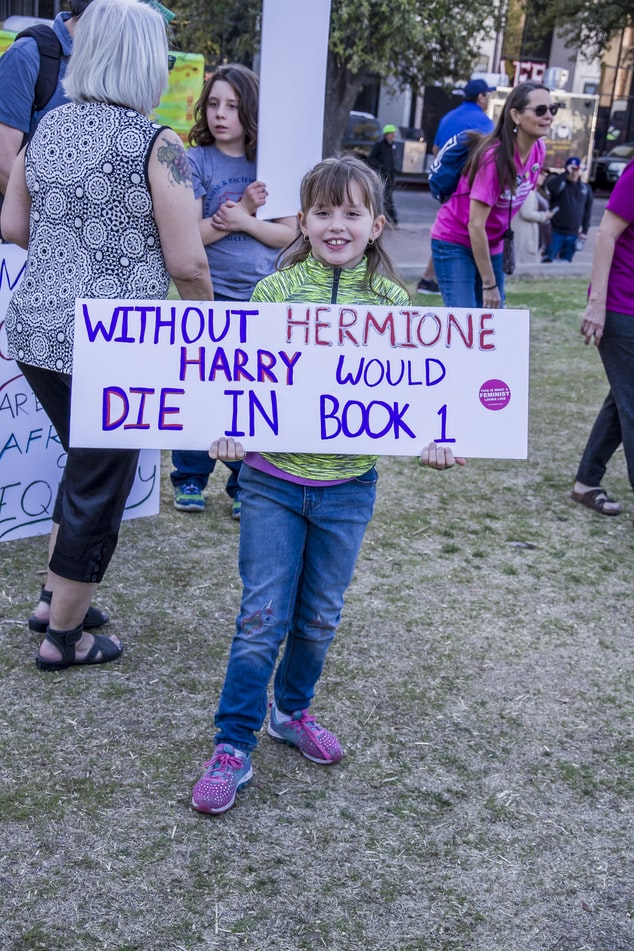 WITHOUT HERMIONE
HARRY WOULD
DIE IN BOOK 1
THIS IS WHAT A
FEMINIST
LOOKS LIKE
ARE
AFR
EQUALITY